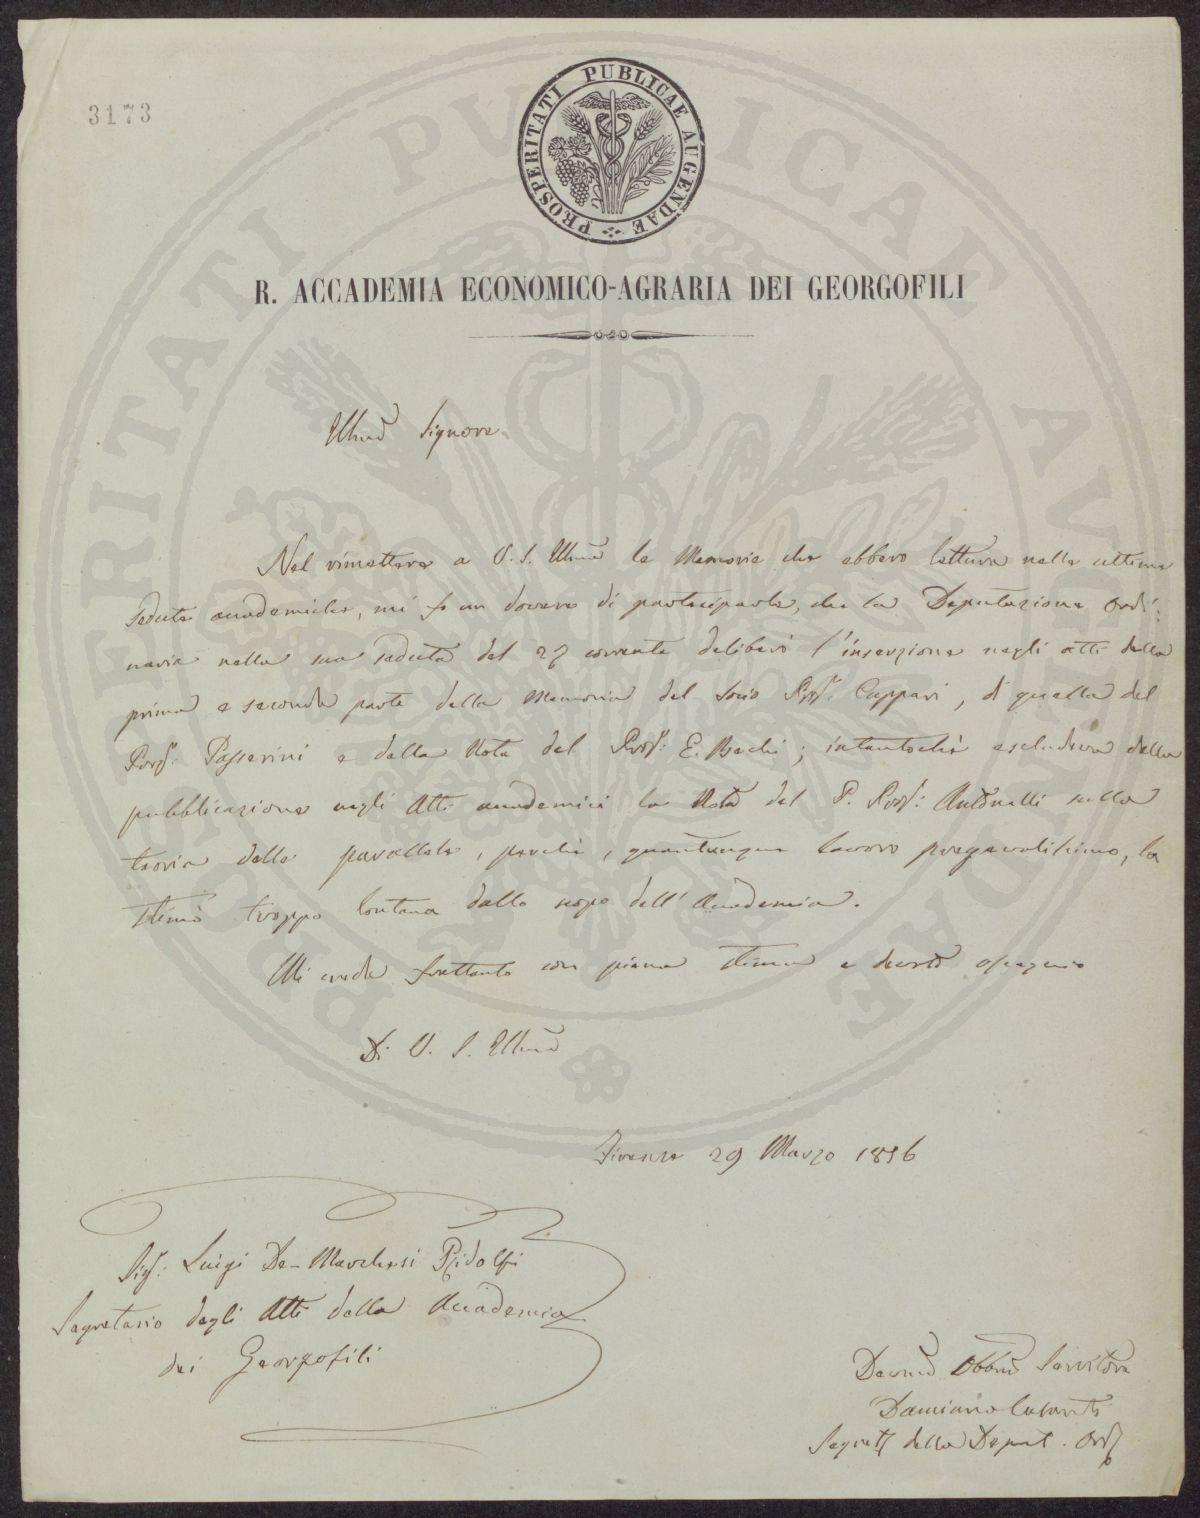 3173
PROSPERITATI PUBLICAE AUGENDAE
R. ACCADEMIA ECONOMICO-AGRARIA DEI GEORGOFILI
Illmo Signore
Nel rimettere a V. S. Illma le Memorie che ebbero lettura nella ultima
seduta accademica, mi fo un dovere di parteciparle, che la Deputazione Ordi:
naria nella sua seduta del 27 corrente deliberò l'inserzione negli atti della
prima e seconda parte della Memoria del Socio Prof. Cuppari, di quella del
Prof: Passerini e della Nota del Prof: E. Bechi; intantochè escludeva dalla
pubblicazione negli Atti accademici la Nota del P. Prof: Antonelli sulla
teoria delle parallele, perchè, quantunque lavoro pregevolissimo, la
stimò troppo lontana dallo scopo dell'Accademia.
Mi creda frattanto con piena stima e devoto ossequio
Di V. S. Illma
Firenze 29 Marzo 1856
Sig: Luigi De-Marchesi Ridolfi
Segretario degli Atti della Accademia
dei Georgofili
Devmo Obbmo Servitore
Damiano Casanti
Segret della Deput. Ord